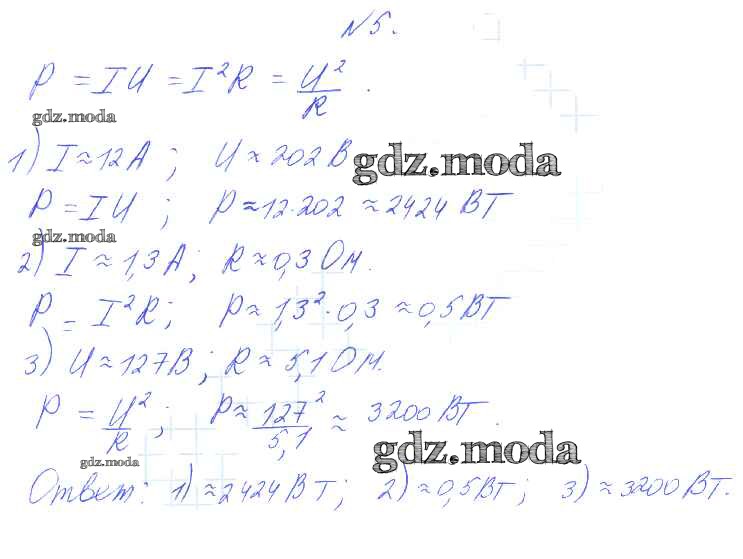 №5.
P = IU = I²R = U²/R.
gdz.moda
1) I ≈ 12 А; U ≈ 202 В
gdz.moda
P = IU; P ≈ 12·202 ≈ 2424 Вт
gdz.moda
2) I ≈ 1,3 А; R ≈ 0,3 Ом.
P = I²R; P ≈ 1,3²·0,3 ≈ 0,5 Вт
3) U ≈ 127 В; R ≈ 5,1 Ом.
P = U²/R; P ≈ 127²/5,1 ≈ 3200 Вт.
gdz.moda
gdz.moda
Ответ: 1) ≈ 2424 Вт; 2) ≈ 0,5 Вт; 3) ≈ 3200 Вт.